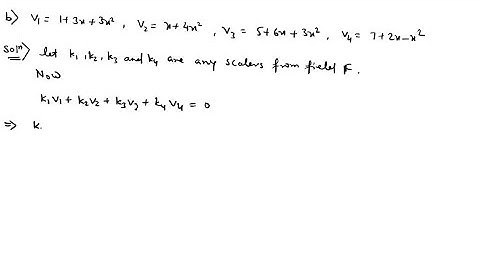 b) V₁ = 1+3x+3x² , V₂ = x+4x² , V₃ = 5+6x+3x² , V₄ = 7+2x-x²
Solⁿ) let k₁, k₂, k₃ and k₄ are any scalers from field F.
Now
k₁V₁ + k₂V₂ + k₃V₃ + k₄V₄ = 0
⇒ k.